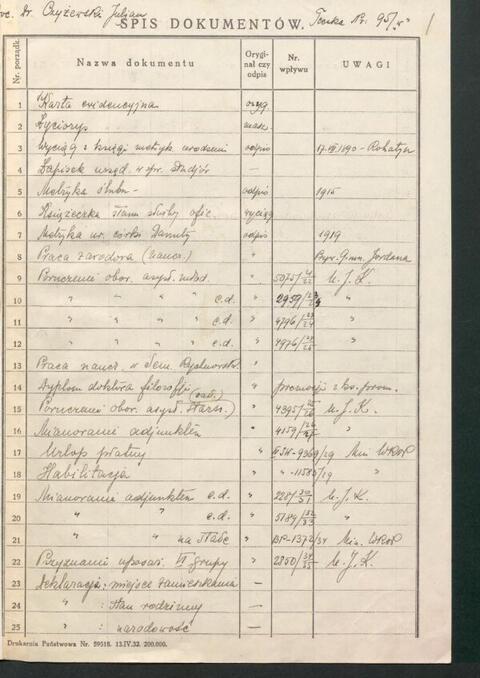 Dr. Czyżewski Julian
SPIS DOKUMENTÓW. Teczka Nr. 95/"
Nr. porządk. Nazwa dokumentu Orygi- nał czy odpis Nr. wpływu UWAGI
1 Karta ewidencyjna oryg
2 Życiorys
3 Wyciąg z księgi metryk urodzeni odpis 17.VII 1890 - Rohatyn
4 Zapisek urzęd. w spr. studjów —
5 Metryka ślubu - odpis 1915
6 Książeczka stanu służby ofic. wyciąg
7 Metryka ur. córki Danuty odpis 1919
8 Praca zawodowa (naucz.) " Pryw. Gimn. Jordana
9 Poruczenie obow. asyst. młod. " 5075/21/22 U. J. K.
10 " " " " c.d. " 2959/ "
11 " " " " c.d. " 4796/23/24 "
12 " " " " c.d. " 4976/ "
13 Praca naucz. w Sem. "
14 Dyplom doktora filozofji " promocji
15 Poruczenie obow. asyst. starsz. " 4395/25/26 U. J. K.
16 Mianowanie adjunktem " 4159/26/27 "
17 Urlop płatny " -9369/29 Min WROP
18 Habilitacja " " -11585/29 "
19 Mianowanie adjunktem c.d. " 228/30/31 U. J. K.
20 " " c.d. " 5189/32/33 "
21 " " na stałe " BP-1372/34 Min. WROP
22 Przyznanie uposaż. VII grupy " 2350/34/35 U. J. K.
23 Deklaracja: miejsce zamieszkania —
24 " : stan rodzinny —
25 " : narodowość —
Drukarnia Państwowa Nr. 59518. 13.IV.32. 200.000.